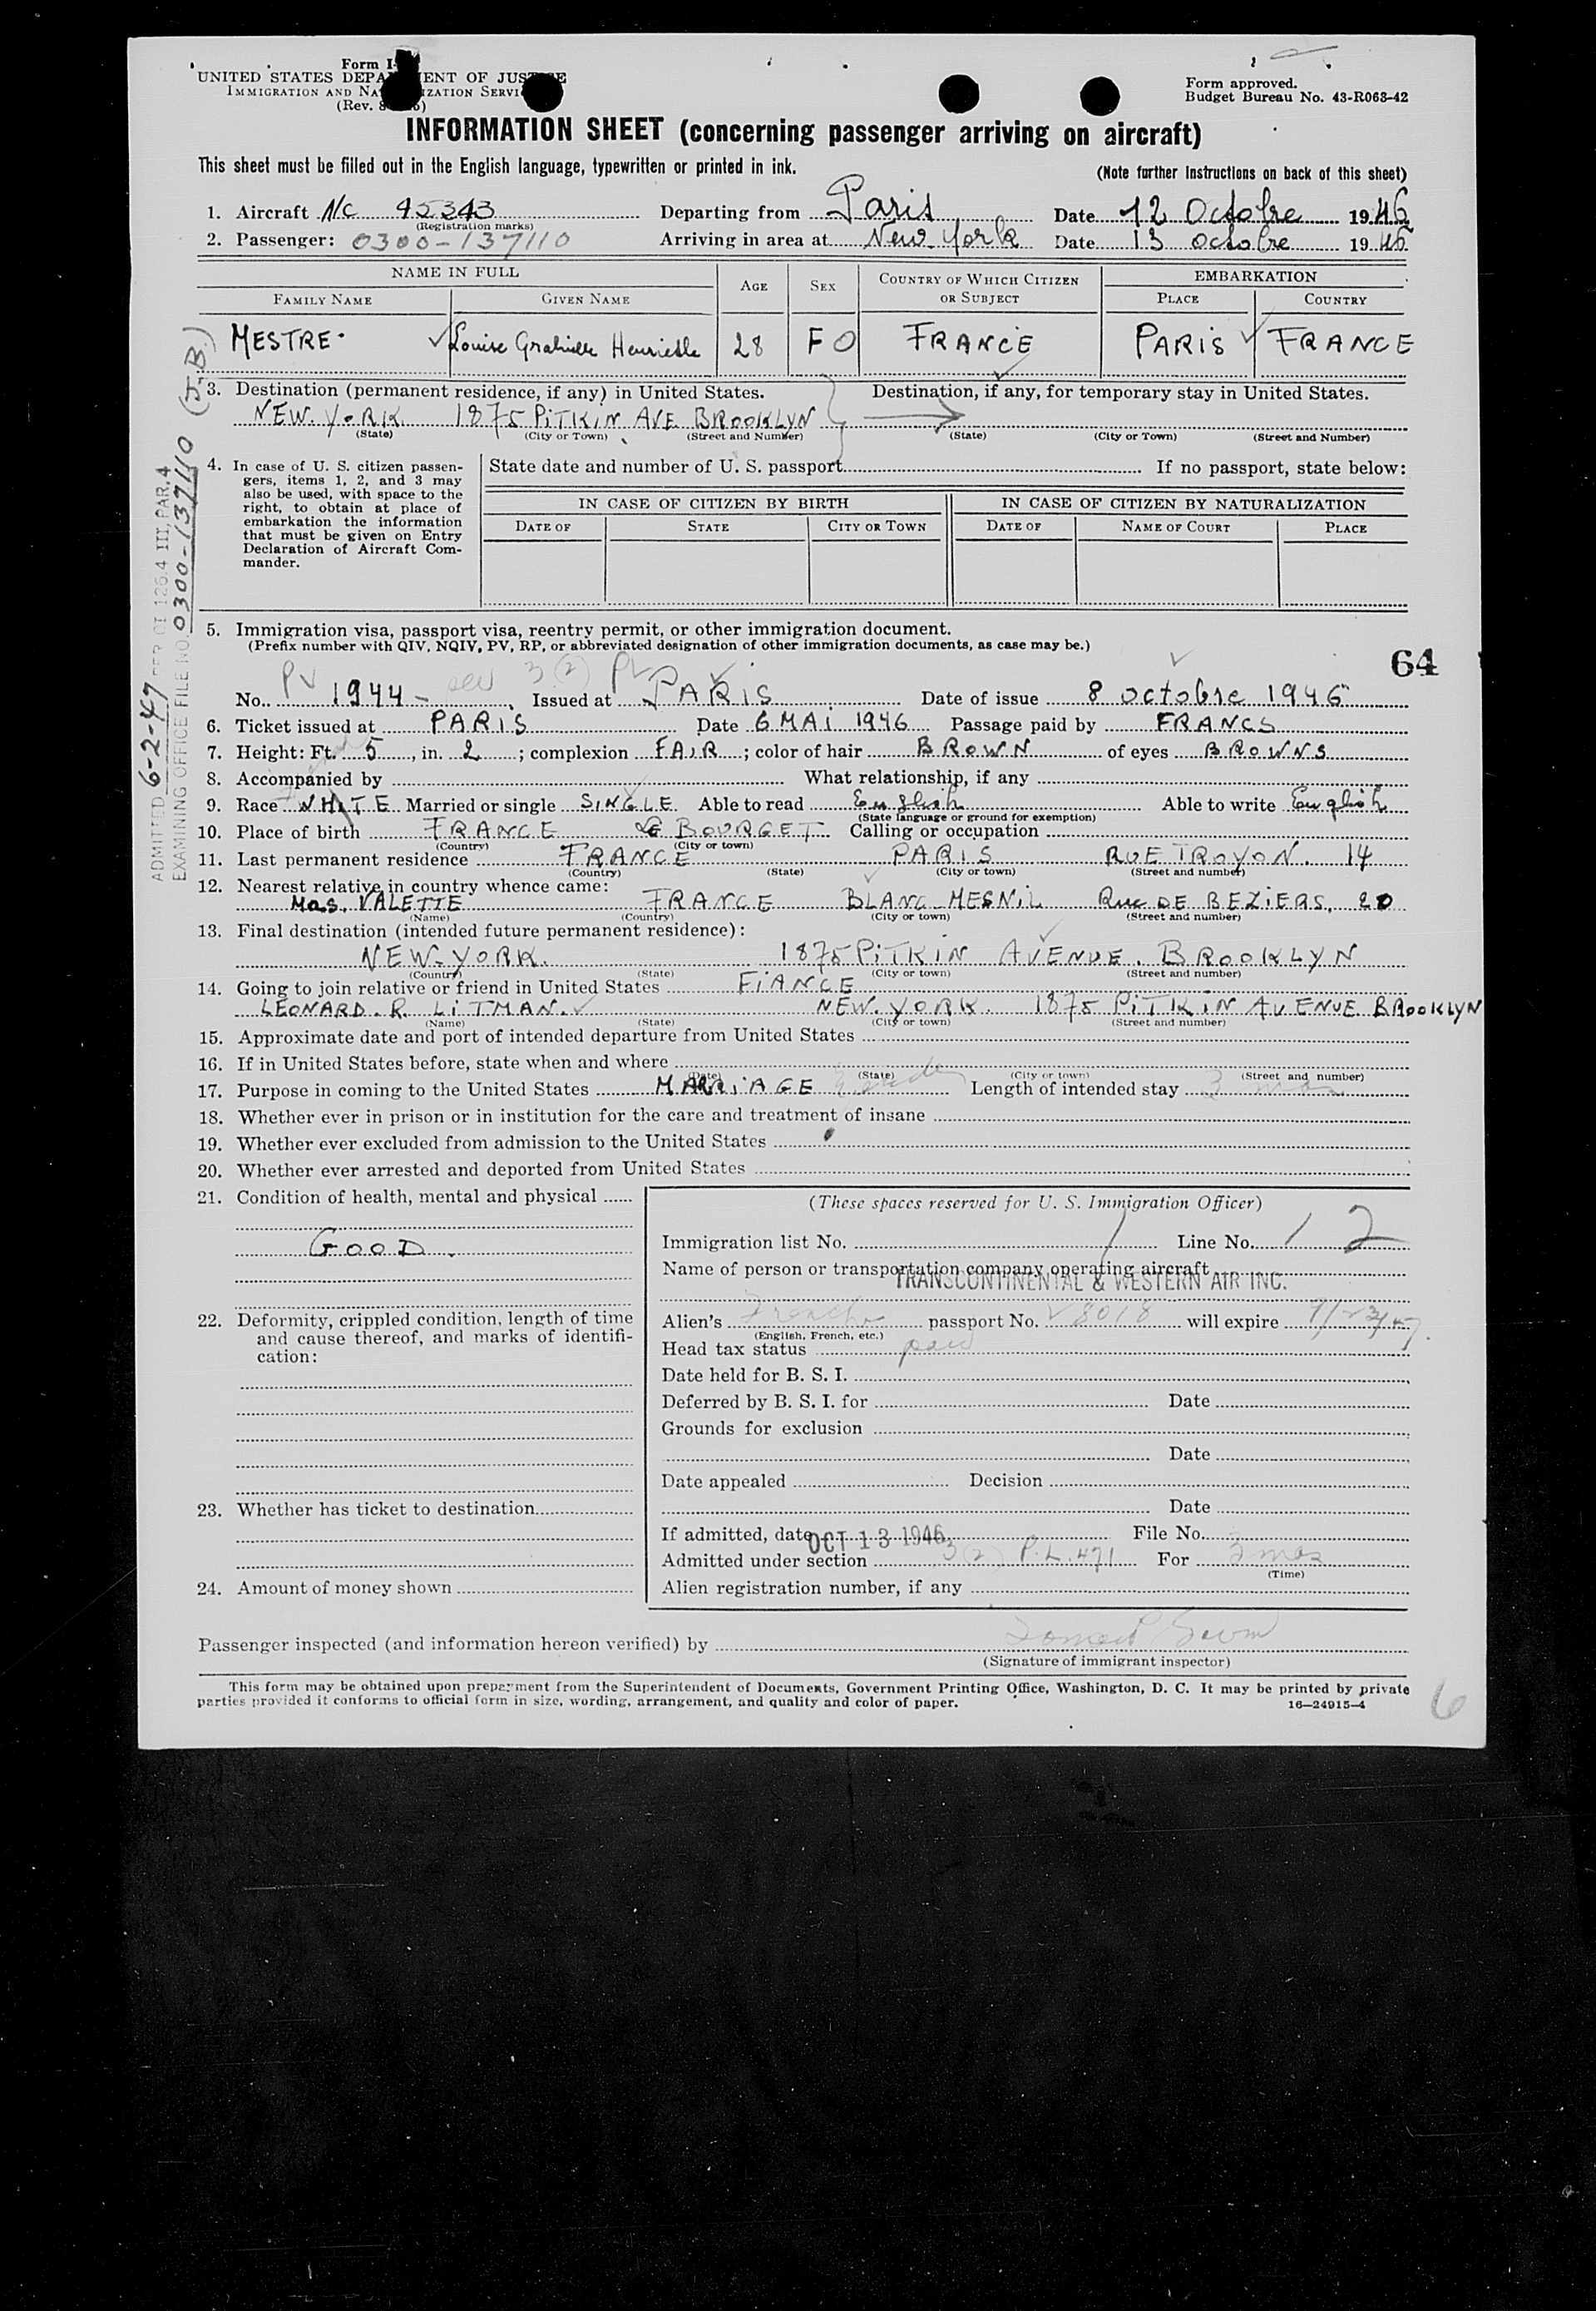 Form I-
UNITED STATES DEPA ENT OF JUS E
IMMIGRATION AND NA IZATION SERVI
(Rev. 8 )
Form approved.
Budget Bureau No. 43-R063-42
INFORMATION SHEET (concerning passenger arriving on aircraft)
This sheet must be filled out in the English language, typewritten or printed in ink.
(Note further instructions on back of this sheet)
1. Aircraft N/C 45343 Departing from Paris Date 12 Octobre 1946
(Registration marks)
2. Passenger: 0300-137110 Arriving in area at New York Date 13 octobre 1946
NAME IN FULL AGE SEX COUNTRY OF WHICH CITIZEN OR SUBJECT EMBARKATION
FAMILY NAME GIVEN NAME PLACE COUNTRY
MESTRE Louise Henriette 28 F O FRANCE PARIS FRANCE
3. Destination (permanent residence, if any) in United States. Destination, if any, for temporary stay in United States.
NEW-YORK 1875 PITKIN AVE BROOKLYN
(State) (City or Town) (Street and Number) (State) (City or Town) (Street and Number)
4. In case of U. S. citizen passen-
gers, items 1, 2, and 3 may
also be used, with space to the
right, to obtain at place of
embarkation the information
that must be given on Entry
Declaration of Aircraft Com-
mander.
State date and number of U. S. passport If no passport, state below:
IN CASE OF CITIZEN BY BIRTH IN CASE OF CITIZEN BY NATURALIZATION
DATE OF STATE CITY OR TOWN DATE OF NAME OF COURT PLACE
ADMITTED 6-2-47 PER OI 126.4 III, PAR. 4
EXAMINING OFFICE FILE NO. 0300-137110 (J.B.)
5. Immigration visa, passport visa, reentry permit, or other immigration document.
(Prefix number with QIV, NQIV, PV, RP, or abbreviated designation of other immigration documents, as case may be.)
64
PV 3 (2) PV
No. 1944- Issued at PARIS Date of issue 8 octobre 1946
6. Ticket issued at PARIS Date 6 MAI 1946 Passage paid by FRANCS
7. Height: Ft. 5, in. 2; complexion FAIR; color of hair BROWN of eyes BROWNS
8. Accompanied by What relationship, if any
9. Race WHITE Married or single SINGLE Able to read English Able to write English
(State language or ground for exemption)
10. Place of birth FRANCE LE BOURGET Calling or occupation
(Country) (City or town)
11. Last permanent residence FRANCE PARIS RUE TROYON. 14
(Country) (State) (City or town) (Street and number)
12. Nearest relative in country whence came:
Mas. VALETTE FRANCE BLANC-MESNIL Rue DE BEZIERS. 20
(Name) (Country) (City or town) (Street and number)
13. Final destination (intended future permanent residence):
NEW-YORK. 1875 PITKIN AVENUE. BROOKLYN
(Country) (State) (City or town) (Street and number)
14. Going to join relative or friend in United States FIANCE
LEONARD. R. LITMAN. NEW. YORK. 1875 PITKIN AVENUE BROOKLYN
(Name) (State) (City or town) (Street and number)
15. Approximate date and port of intended departure from United States
16. If in United States before, state when and where
(Date) (State) (City or town) (Street and number)
17. Purpose in coming to the United States MARRIAGE Length of intended stay 3 mos
18. Whether ever in prison or in institution for the care and treatment of insane
19. Whether ever excluded from admission to the United States
20. Whether ever arrested and deported from United States
21. Condition of health, mental and physical
GOOD.
22. Deformity, crippled condition, length of time
and cause thereof, and marks of identifi-
cation:
23. Whether has ticket to destination
24. Amount of money shown
(These spaces reserved for U. S. Immigration Officer)
Immigration list No. Line No. 12
Name of person or transportation company operating aircraft
TRANSCONTINENTAL & WESTERN AIR INC.
Alien's French passport No. 8018 will expire
(English, French, etc.)
Head tax status paid
Date held for B. S. I.
Deferred by B. S. I. for Date
Grounds for exclusion
Date
Date appealed Decision
Date
If admitted, date OCT 13 1946 File No.
Admitted under section 3(2) P.L. 471 For 3 mos
(Time)
Alien registration number, if any
Passenger inspected (and information hereon verified) by
(Signature of immigrant inspector)
This form may be obtained upon prepayment from the Superintendent of Documents, Government Printing Office, Washington, D. C. It may be printed by private
parties provided it conforms to official form in size, wording, arrangement, and quality and color of paper. 16—24915-4
6